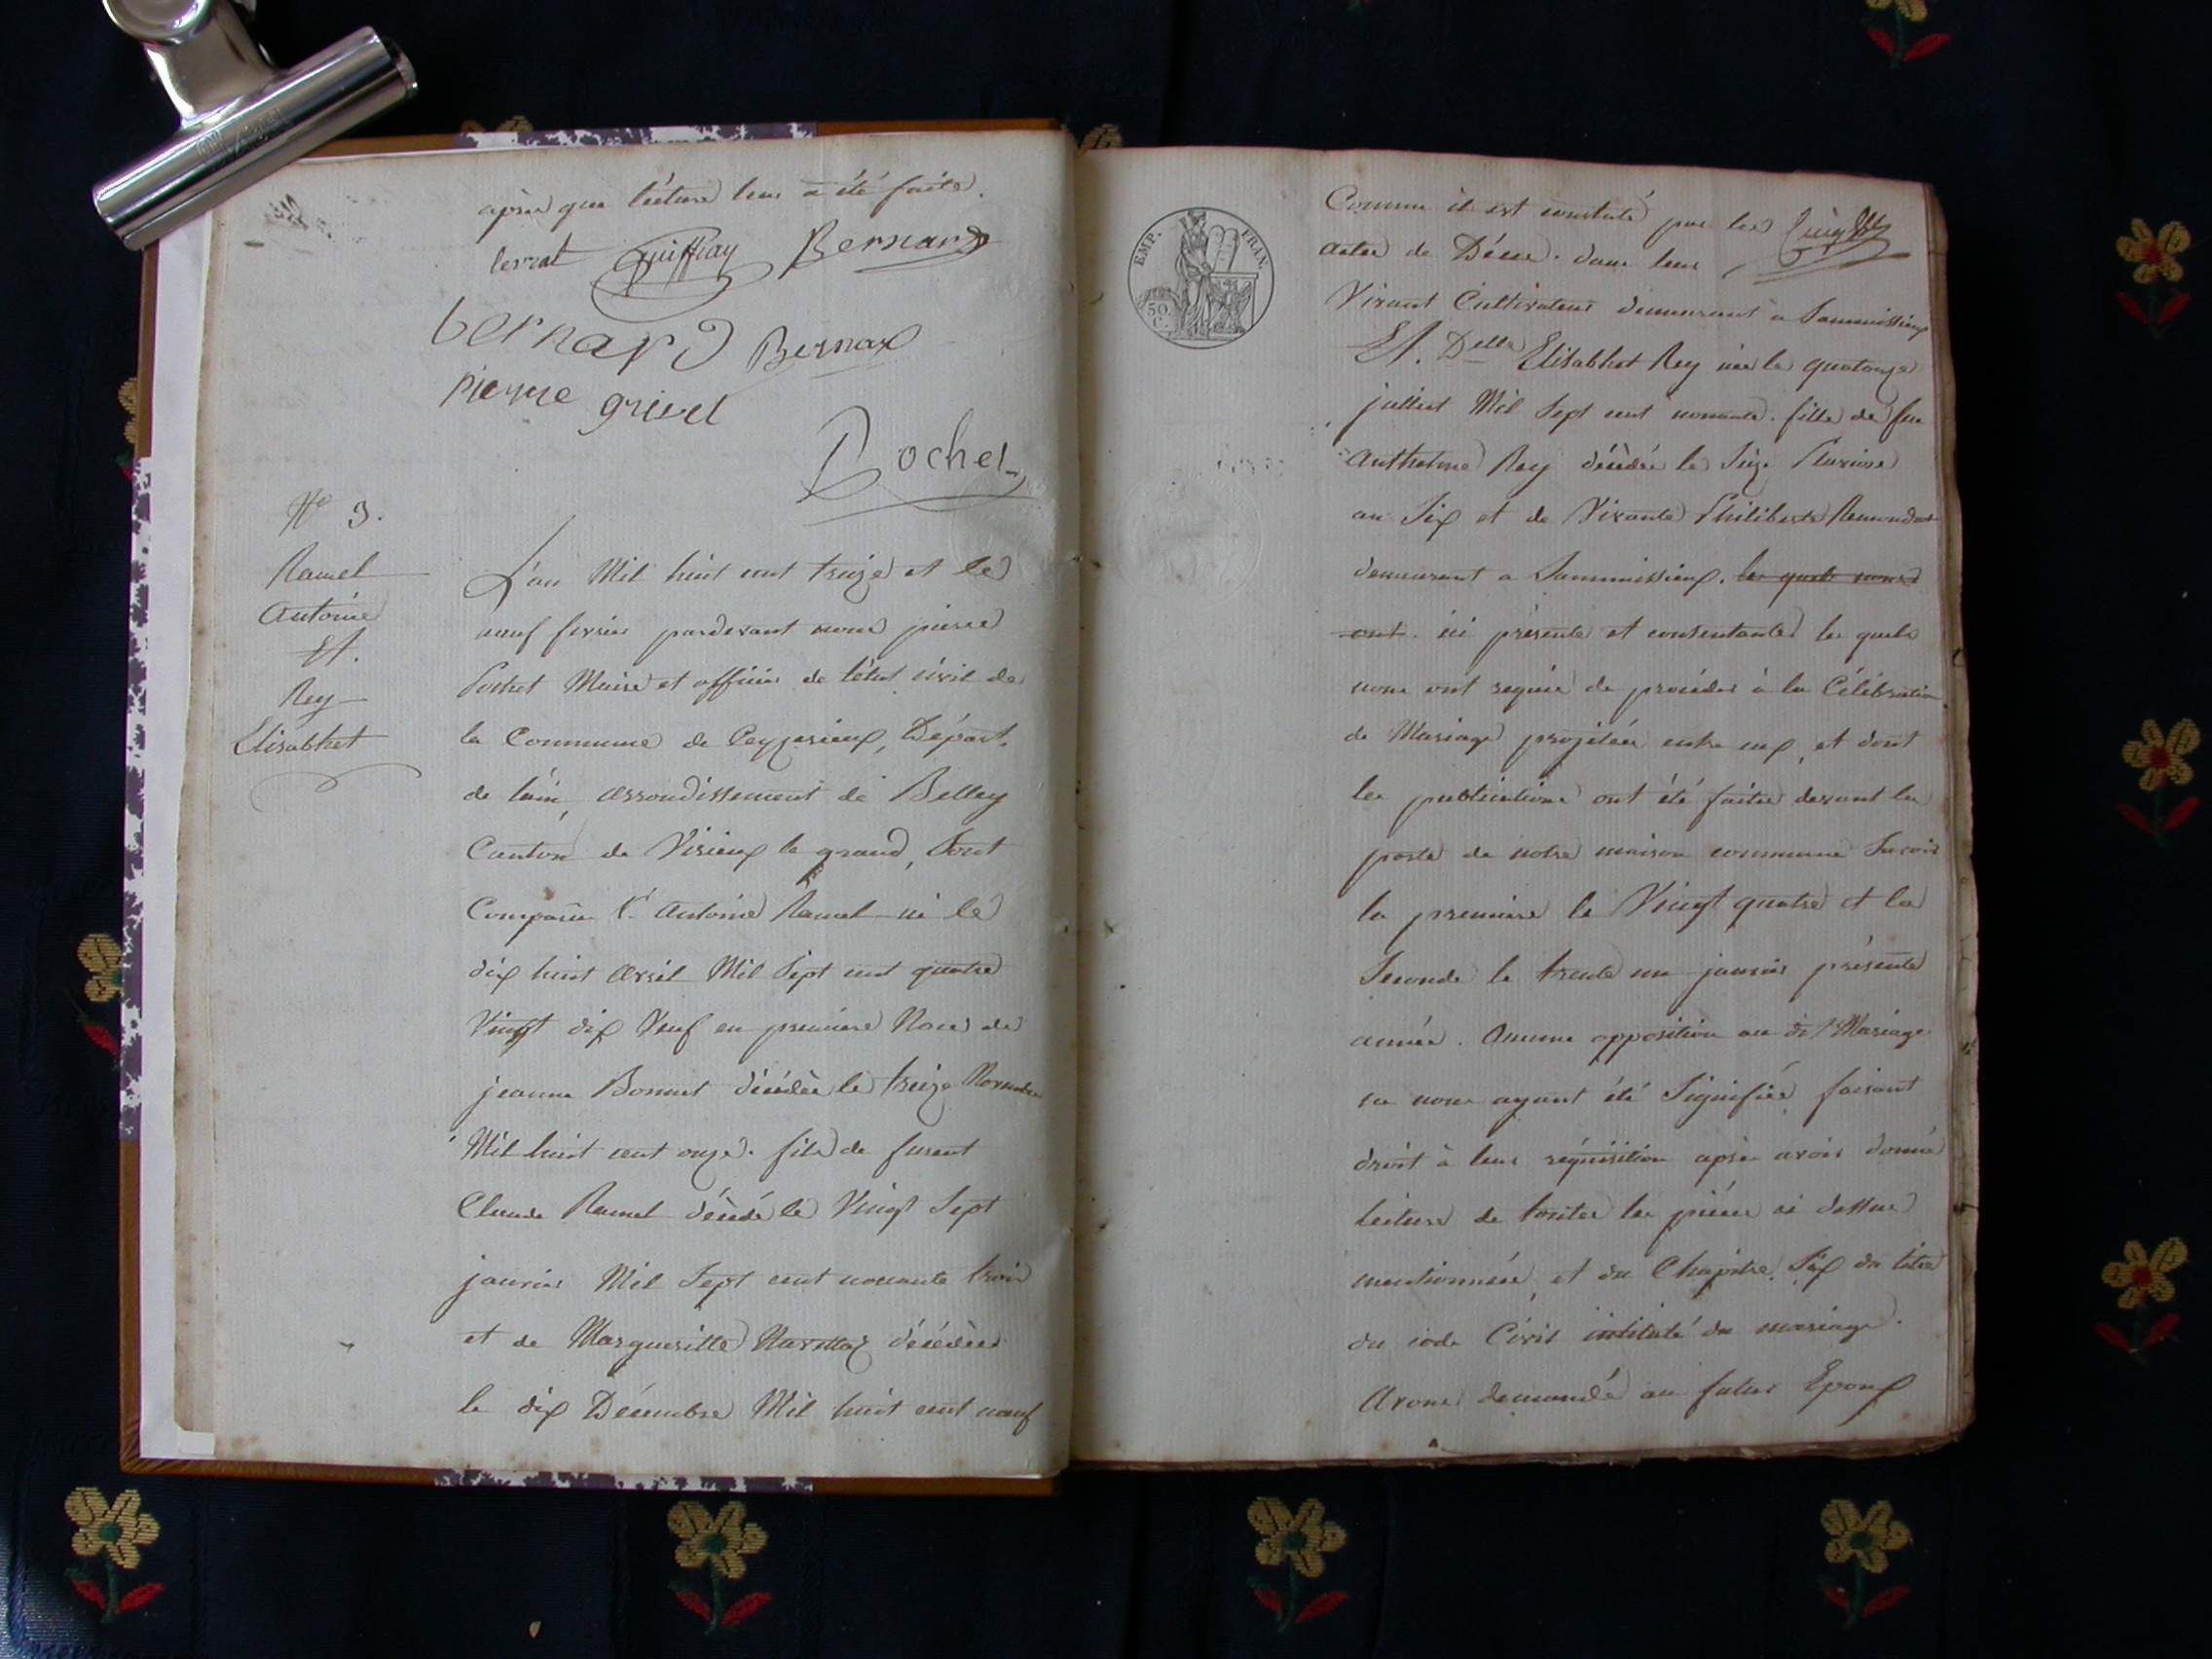 après que lécture leur a été faite.
levrat Guiffray Bernard
bernard Bernard
pierre grivel
Pochet
N° 3.
Ramel
Antoine
Et.
Rey
Elisabhet
L'an Mil huit cent treize et le
neuf fevrier pardevant nous pierre
Pochet Maire et officier de létat civil de
la Commune de Peyzieux, Départ.
de lain, arrondissement de Belley
Canton de Virieux le grand, Sont
Comparu Sr. Antoine Ramel né le
dix huit avril Mil Sept cent quatre
Vingt dix Veuf en premiere Noce de
jeanne Bonnet décédée le treize Novembre
Mil huit cent onze. fils de furent
Claude Ramel décédé le Vingt Sept
janvier Mil Sept cent nonante trois
et de Margueritte décédée
le dix Décembre Mil huit cent neuf
EMP. FRAN.
50. C.
Comme il est constaté par les
actes de Décès. dans leur
Vivant Cultivateur demeurant a Sammissieux
Et. Delle Elisabhet Rey née le quatorze
juillet Mil Sept cent nonante. fille de feu
Anthelme Rey décédée le Seize Pluviose
an Six et de Vivante Philiberte
demeurant a Sammissieux. les quels nous
ont. ici présente et consentante les quels
nous ont requis de procéder à la Célébration
de Mariage projetée entre eux, et dont
les publications ont été faites devant la
porte de notre maison commune Savoir
la premiere le Vingt quatre et la
Seconde le trente un janvier présente
année. Aucune opposition au dit Mariage
ne nous ayant été Signifiée faisant
droit à leur réquisition après avoir donné
lecture de toutes les pièces ci dessus
mentionnées, et du Chapitre Six du titre
du code Civil intitulé du mariage.
Avons demandé au futur Epoux